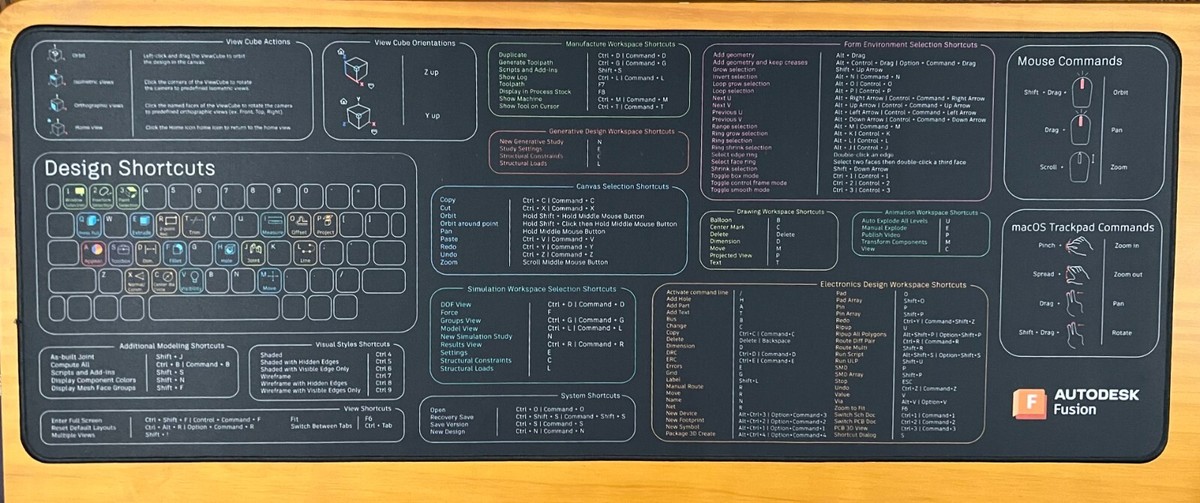 View Cube Actions
Orbit
Left-click and drag the ViewCube to orbit
the design in the canvas
Isometric views
Click the corners of the ViewCube to rotate
the camera to predefined isometric views.
Orthographic views
Click the named faces of the ViewCube to rotate the camera
to predefined orthographic views (ex. Front, Top, Right)
Home view
Click the Home icon home icon to return to the home view
View Cube Orientations
Z up
Y up
Manufacture Workspace Shortcuts
Duplicate Ctrl + D | Command + D
Generate Toolpath Ctrl + G | Command + G
Scripts and Add-Ins Shift + S
Show Log Ctrl + L | Command + L
Toolpath F7
Display In Process Stock F8
Show Machine Ctrl + M | Command + M
Show Tool on Cursor Ctrl + T | Command + T
Generative Design Workspace Shortcuts
New Generative Study N
Study Settings E
Structural Constraints C
Structural Loads L
Form Environment Selection Shortcuts
Add geometry Alt + Drag
Add geometry and keep creases Alt + Control + Drag | Option + Command + Drag
Grow selection Shift + Up Arrow
Invert selection Alt + N | Command + N
Loop grow selection Alt + O | Control + O
Loop selection Alt + P | Control + P
Next U Alt + Right Arrow | Control + Command + Right Arrow
Next V Alt + Up Arrow | Control + Command + Up Arrow
Previous U Alt + Left Arrow | Control + Command + Left Arrow
Previous V Alt + Down Arrow | Control + Command + Down Arrow
Range selection Alt + M | Command + M
Ring grow selection Alt + K | Control + K
Ring selection Alt + L | Control + L
Ring shrink selection Alt + J | Control + J
Select edge ring Double-click an edge
Select face ring Select two faces then double-click a third face
Shrink selection Shift + Down Arrow
Toggle box mode Ctrl + 1 | Control + 1
Toggle control frame mode Ctrl + 2 | Control + 2
Toggle smooth mode Ctrl + 3 | Control + 3
Mouse Commands
Shift + Drag Orbit
Drag Pan
Scroll Zoom
Design Shortcuts
Canvas Selection Shortcuts
Copy Ctrl + C | Command + C
Cut Ctrl + X | Command + X
Orbit Hold Shift + Hold Middle Mouse Button
Orbit around point Hold Shift + Click then Hold Middle Mouse Button
Pan Hold Middle Mouse Button
Paste Ctrl + V | Command + V
Redo Ctrl + Y | Command + Y
Undo Ctrl + Z | Command + Z
Zoom Scroll Middle Mouse Button
Drawing Workspace Shortcuts
Balloon B
Center Mark C
Delete Delete
Dimension D
Move M
Projected View P
Text T
Animation Workspace Shortcuts
Auto Explode All Levels U
Manual Explode E
Publish Video P
Transform Components M
View C
macOS Trackpad Commands
Pinch Zoom in
Spread Zoom out
Drag Pan
Shift + Drag Rotate
Simulation Workspace Selection Shortcuts
DOF View Ctrl + D | Command + D
Force F
Groups View Ctrl + G | Command + G
Model View Ctrl + L | Command + L
New Simulation Study N
Results View Ctrl + R | Command + R
Settings E
Structural Constraints C
Structural Loads L
Electronics Design Workspace Shortcuts
Activate command line /
Add Hole H
Add Part A
Add Text T
Bus B
Change C
Copy Ctrl+C | Command+C
Delete Delete | Backspace
Dimension D
DRC Ctrl+D | Command+D
ERC Ctrl+E | Command+E
Errors E
Grid G
Label Shift+L
Manual Route R
Move
Name N
Net
New Device Alt+Ctrl+3 | Option+Command+3
New Footprint Alt+Ctrl+2 | Option+Command+2
New Symbol Alt+Ctrl+1 | Option+Command+1
Package 3D Create Alt+Ctrl+4 | Option+Command+4
Pad O
Pad Array Shift+O
Pin P
Pin Array Shift+P
Redo Ctrl+Y | Command+Shift+Z
Ripup U
Ripup All Polygons Alt+Shift+P | Option+Shift+P
Route Diff Pair Ctrl+R | Command+R
Route Multi Shift+R
Run Script Alt+Shift+S | Option+Shift+S
Run ULP Shift+U
SMD P
SMD Array Shift+P
Stop ESC
Undo Ctrl+Z | Command+Z
Value V
Via Alt+V | Option+V
Zoom to Fit F6
Switch Sch Doc Ctrl+1 | Command+1
Switch PCB Doc Ctrl+2 | Command+2
PCB 3D View Ctrl+3 | Command+3
Shortcut Dialog S
Additional Modeling Shortcuts
As-built Joint Shift + J
Compute All Ctrl + B | Command + B
Scripts and Add-Ins Shift + S
Display Component Colors Shift + N
Display Mesh Face Groups Shift + F
Visual Styles Shortcuts
Shaded Ctrl 4
Shaded with Hidden Edges Ctrl 5
Shaded with Visible Edge Only Ctrl 6
Wireframe Ctrl 7
Wireframe with Hidden Edges Ctrl 8
Wireframe with Visible Edges Only Ctrl 9
View Shortcuts
Enter Full Screen Ctrl + Shift + F | Control + Command + F
Reset Default Layouts Ctrl + Alt + R | Option + Command + R
Multiple Views Shift + !
Fit F6
Switch Between Tabs Ctrl + Tab
System Shortcuts
Open Ctrl + O | Command + O
Recovery Save Ctrl + Shift + S | Command + Shift + S
Save Version Ctrl + S | Command + S
New Design Ctrl + N | Command + N
F
AUTODESK
Fusion